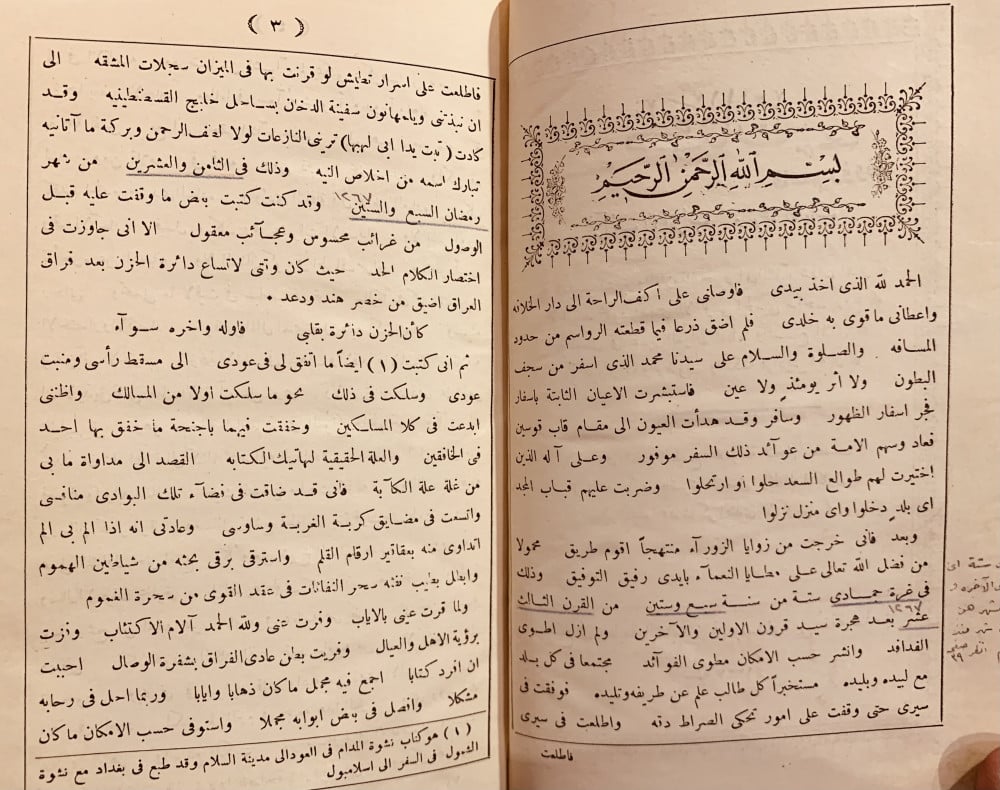 بسم الله الرحمن الرحيم
الحمد لله الذى اخذ بيدى فاوصانى على اكف الراحة الى دار الخلافه
واعطانى ما قوى به خلدى فلم اضق ذرعا فيما قطعته الرواسم من حدود
المسافه والصلوة والسلام على سيدنا محمد الذى اسفر من سجف
البطون ولا اثر يومئذٍ ولا عين فاستبشرت الاعيان الثابتة باسفار
فجر اسفار الظهور وسافر وقد هدأت العيون الى مقام قاب قوسين
فعاد وسهم الامة من عوائد ذلك السفر موفور وعلى آله الذين
اختيرت لهم طوالع السعد حلوا او ارتحلوا وضربت عليهم قباب المجد
اى بلدٍ دخلوا واى منزل نزلوا
وبعد فانى خرجت من زوايا الزورآء منتهجاً اقوم طريق محمولا
من فضل الله تعالى على مطايا النعمآء بايدى رفيق التوفيق وذلك
فى غرة جمادى ستة من سنة سبع وستين من القرن الثالث
١٢٦٧
عشر بعد هجرة سيد قرون الاولين والآخرين ولم ازل اطوى
الفدافد وانشر حسب الامكان مطوى الفوآئد مجتمعا فى كل بلد
مع لبيده وبليده مستخبراً كل طالب علم عن طريفه وتليده فوقفت فى
سيرى حتى وقفت على امور تحكى الصراط دقه واطلعت فى سيرى
فاطلعت
( ٣ )
فاطلعت على اسرار تطيش لو قرنت بها فى الميزان سجلات المشقه الى
ان نبذتنى ويلمهانون سفينة الدخان بساحل خليج القسطنطينيه وقد
كادت ( تبت يدا ابى لهبها ) ترينى النازعات لولا لطف الرحمن وبركة ما آتانيه
تبارك اسمه من اخلاص النيه وذلك فى الثامن والعشرين من شهر
رمضان السبع والستين وقد كنت كتبت بعض ما وقفت عليه قبل
١٢٦٧
الوصول من غرائب محسوس وعجآئب معقول الا انى جاوزت فى
اختصار الكلام الحد حيث كان وقتى لاتساع دائرة الحزن بعد فراق
العراق اضيق من خصر هند ودعد .
كأن الحزن دائرة بقلبى فاوله واخره سوآء
ثم انى كتبت (١) ايضاً ما اتفق لى فى عودى الى مسقط رأسى ومنبت
عودى وسلكت فى ذلك نحو ما سلكت اولا من المسالك واظننى
ابدعت فى كلا المسلكين وخفقت فيهما باجنحة ما خفق بها احد
فى الخافقين والعلة الحقيقية لهاتيك الكتابه القصد الى مداواة ما بى
من غلة علة الكآبة فانى قد ضاقت فى فضآء تلك البوادى منافسى
واتسعت فى مضايق كربة الغربة وساوسى وعادتى انه اذا الم بى الم
اتداوى منه بعقاقير ارقام القلم واسترقى برقى بحثه من شياطين الهموم
وابطل بطيب نفثه سحر النفاثات فى عقد القوى من سحرة الغموم
ولما قرت عينى بالاياب وفرت عنى ولله الحمد آلام الاكتئاب وفزت
برؤية الاهل والعيال وفريت بطن عادى الفراق بشفرة الوصال احببت
ان افرد كتابا اجمع فيه مجمل ما كان ذهابا وايابا وربما احل فى رحابه
مشكلا وافصل فى بعض ابوابه مجملا واستوفى حسب الامكان ما كان
(١) هو كتاب نشوة المدام فى العود الى مدينة السلام وقد طبع فى بغداد مع نشوة
الشمول فى السفر الى اسلامبول